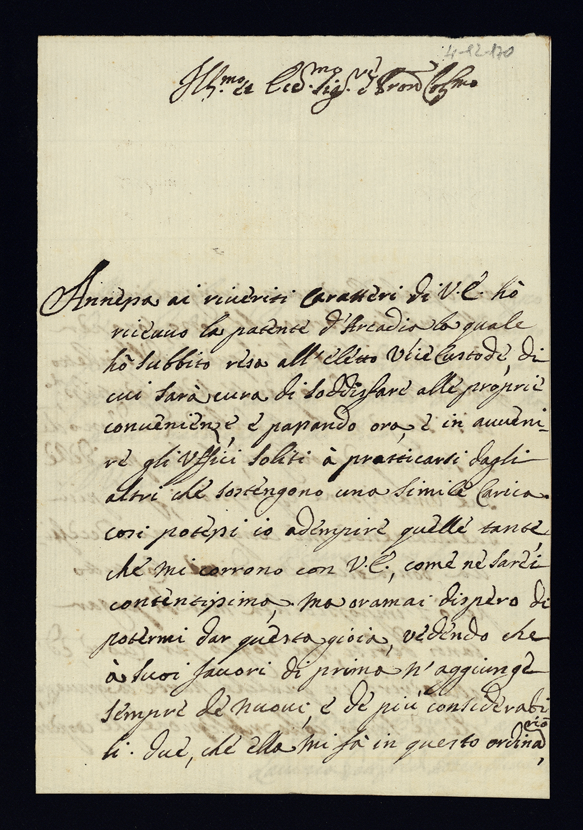 4-12-170
Ill.mo et Ecc.mo Sig.re e Pron Col.mo
Annessa ai riveriti caratteri di V. E. hò
ricevuo la patente d'Arcadia la quale
hò subbito resa all'eletto Vice Custode, di
cui sarà cura di soddisfare alle proprie
convenienze, e passando ora, e in avveni-
re gli Uffici soliti à pratticarsi dagli
altri che sostengono una simile Carica.
così potessi io adempire quelle tante,
che mi corrono con V. E., come ne sarei
contentissimo, ma oramai dispero di
potermi dar questa gioia, vedendo che
à suoi favori di prima n'aggiunge
sempre de nuovi, e de più considerabi
li. due, che ella mi fà in questo ordina
rio,